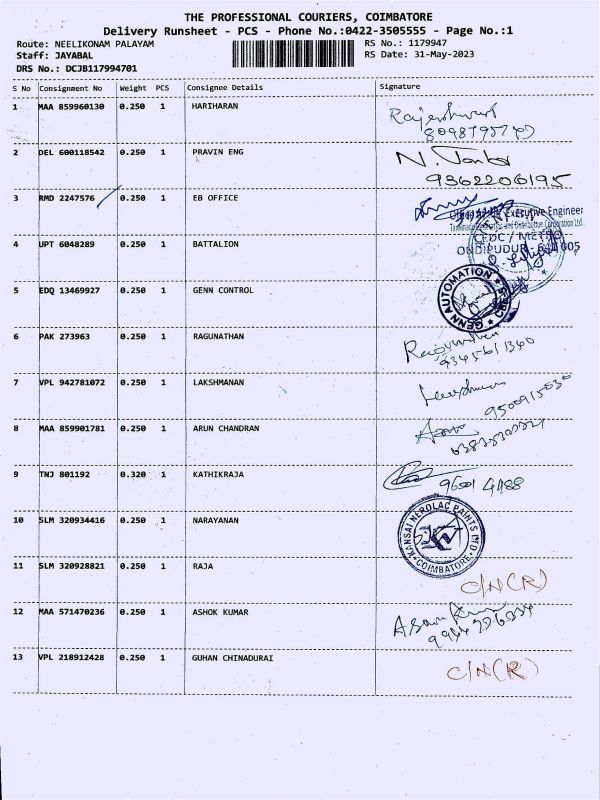 THE PROFESSIONAL COURIERS, COIMBATORE
Delivery Runsheet - PCS - Phone No.:0422-3505555 - Page No.:1
Route: NEELIKONAM PALAYAM RS No.: 1179947
Staff: JAYABAL RS Date: 31-May-2023
DRS No.: DCJB117994701
S No Consignment No Weight PCS Consignee Details Signature
1 MAA 859960130 0.250 1 HARIHARAN
2 DEL 600118542 0.250 1 PRAVIN ENG
9362206195
3 RMD 2247576 0.250 1 EB OFFICE
Executive Engineer
4 UPT 6048289 0.250 1 BATTALION
CEDC / METRO
ONDIPUDUR
5 EDQ 13469927 0.250 1 GENN CONTROL
GENN AUTOMATION
6 PAK 273963 0.250 1 RAGUNATHAN
7 VPL 942781072 0.250 1 LAKSHMANAN
8 MAA 859901781 0.250 1 ARUN CHANDRAN
9 TNJ 801192 0.320 1 KATHIKRAJA
10 SLM 320934416 0.250 1 NARAYANAN
KANSAI NEROLAC PAINTS LTD
COIMBATORE
11 SLM 320928821 0.250 1 RAJA C/N(R)
12 MAA 571470236 0.250 1 ASHOK KUMAR
13 VPL 218912428 0.250 1 GUHAN CHINADURAI C/N(R)